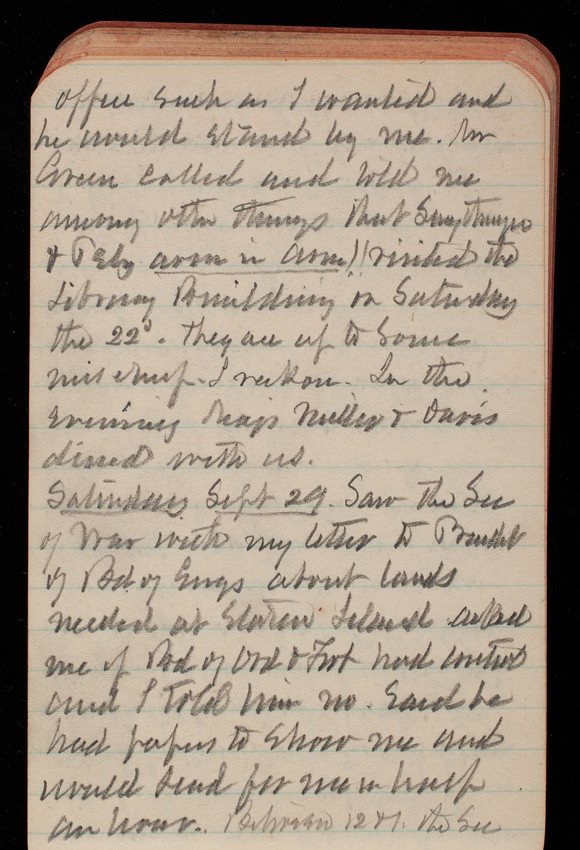 office such as I wanted and
he would stand by me. Mr
Green called and told me
among other things that Smythmyer
& P Ely arm in arm!! visited the
Library Building on Saturday
the 22d. They are up to some
mischief I reckon. In the
evening Majs Miller & Davis
dined with us.
Saturday Sept 29. Saw the Sec
of War with my letter to Presdt
of Bd of Engs about lands
needed at Staten Island asked
me if Bd of Ord & Fort had control
and I told him no. Said he
had papers to show me and
would send for me in half
an hour. Between 12 & 1. the Sec